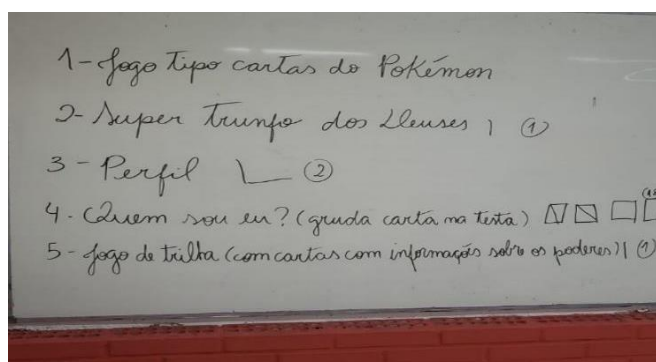 1- Jogo tipo cartas do Pokémon
2- Super trunfo dos Deuses | ①
3 - Perfil ②
4. Quem sou eu? (gruda carta na testa)
5- Jogo de trilha (com cartas com informações sobre os poderes) | ①